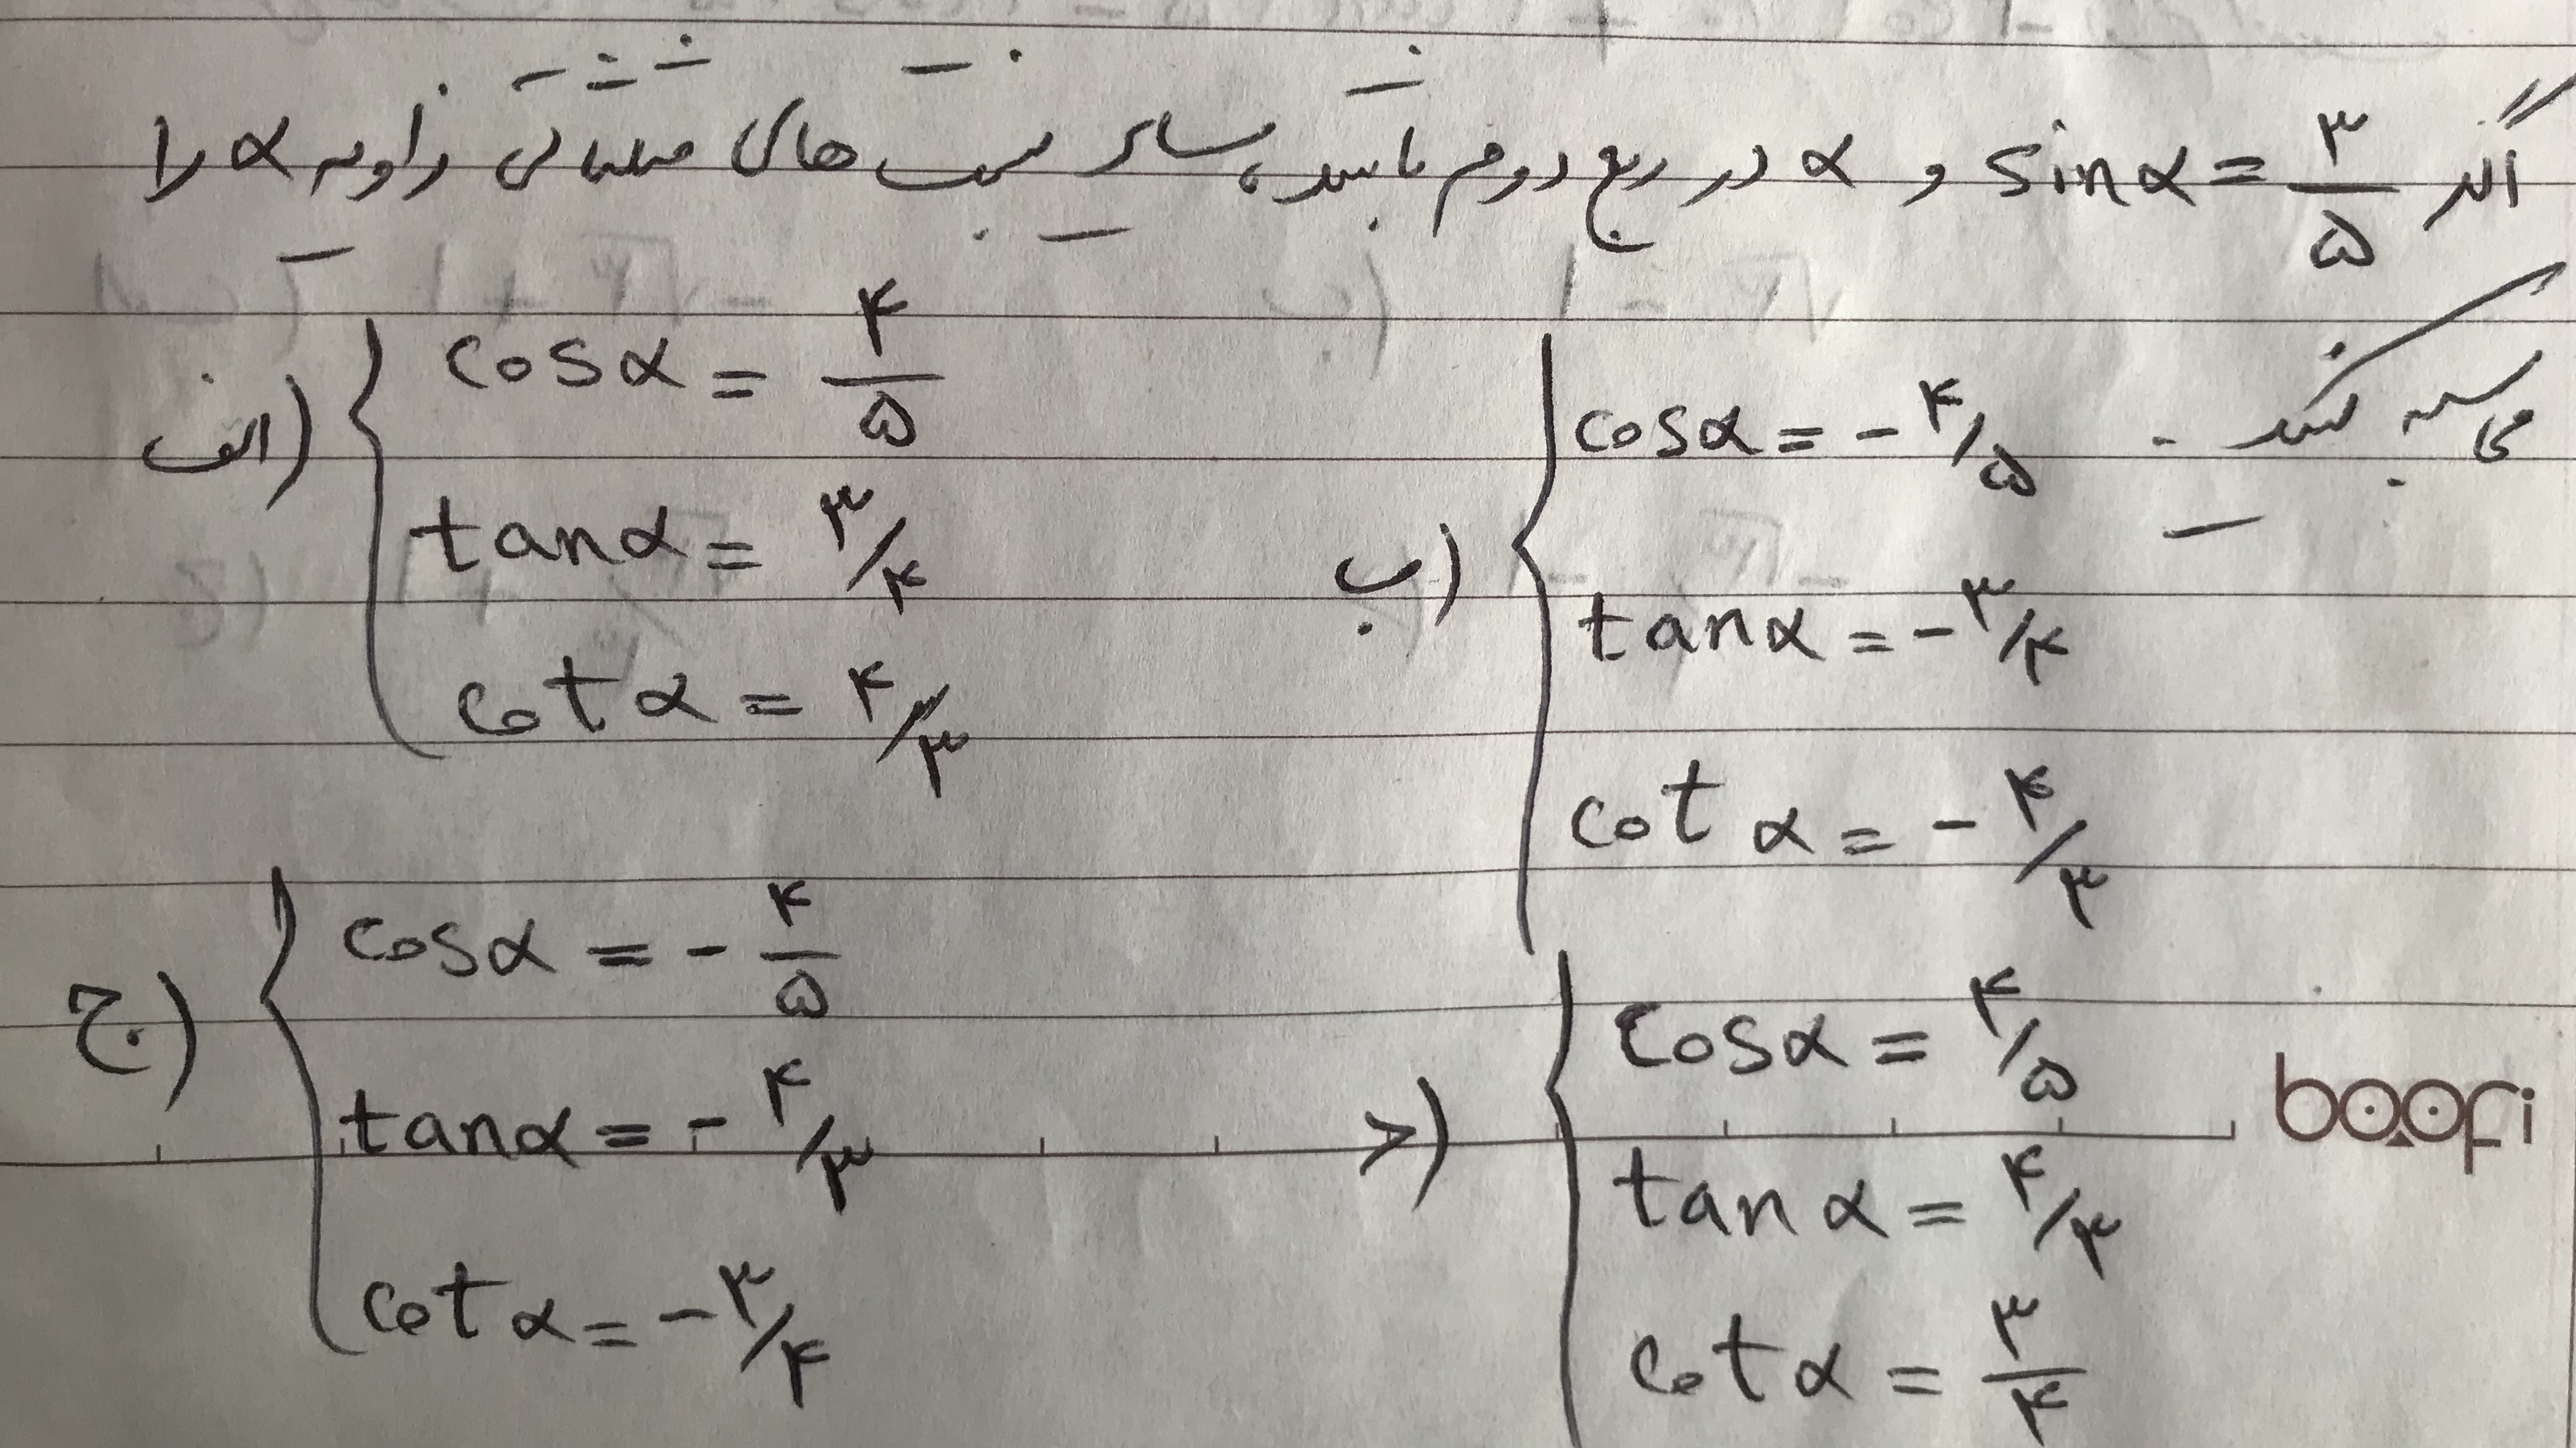 اگر sinα = ۳/۵ و α در ربع دوم باشد، سایر نسبت های مثلثاتی زاویه α را
محاسبه کنید.
الف) cosα = ۴/۵
tanα = ۳/۴
cotα = ۴/۳
ب) cosα = -۴/۵
tanα = -۳/۴
cotα = -۴/۳
ج) cosα = -۴/۵
tanα = -۴/۳
cotα = -۳/۴
د) cosα = ۴/۵
tanα = ۴/۳
cotα = ۳/۴
boofi